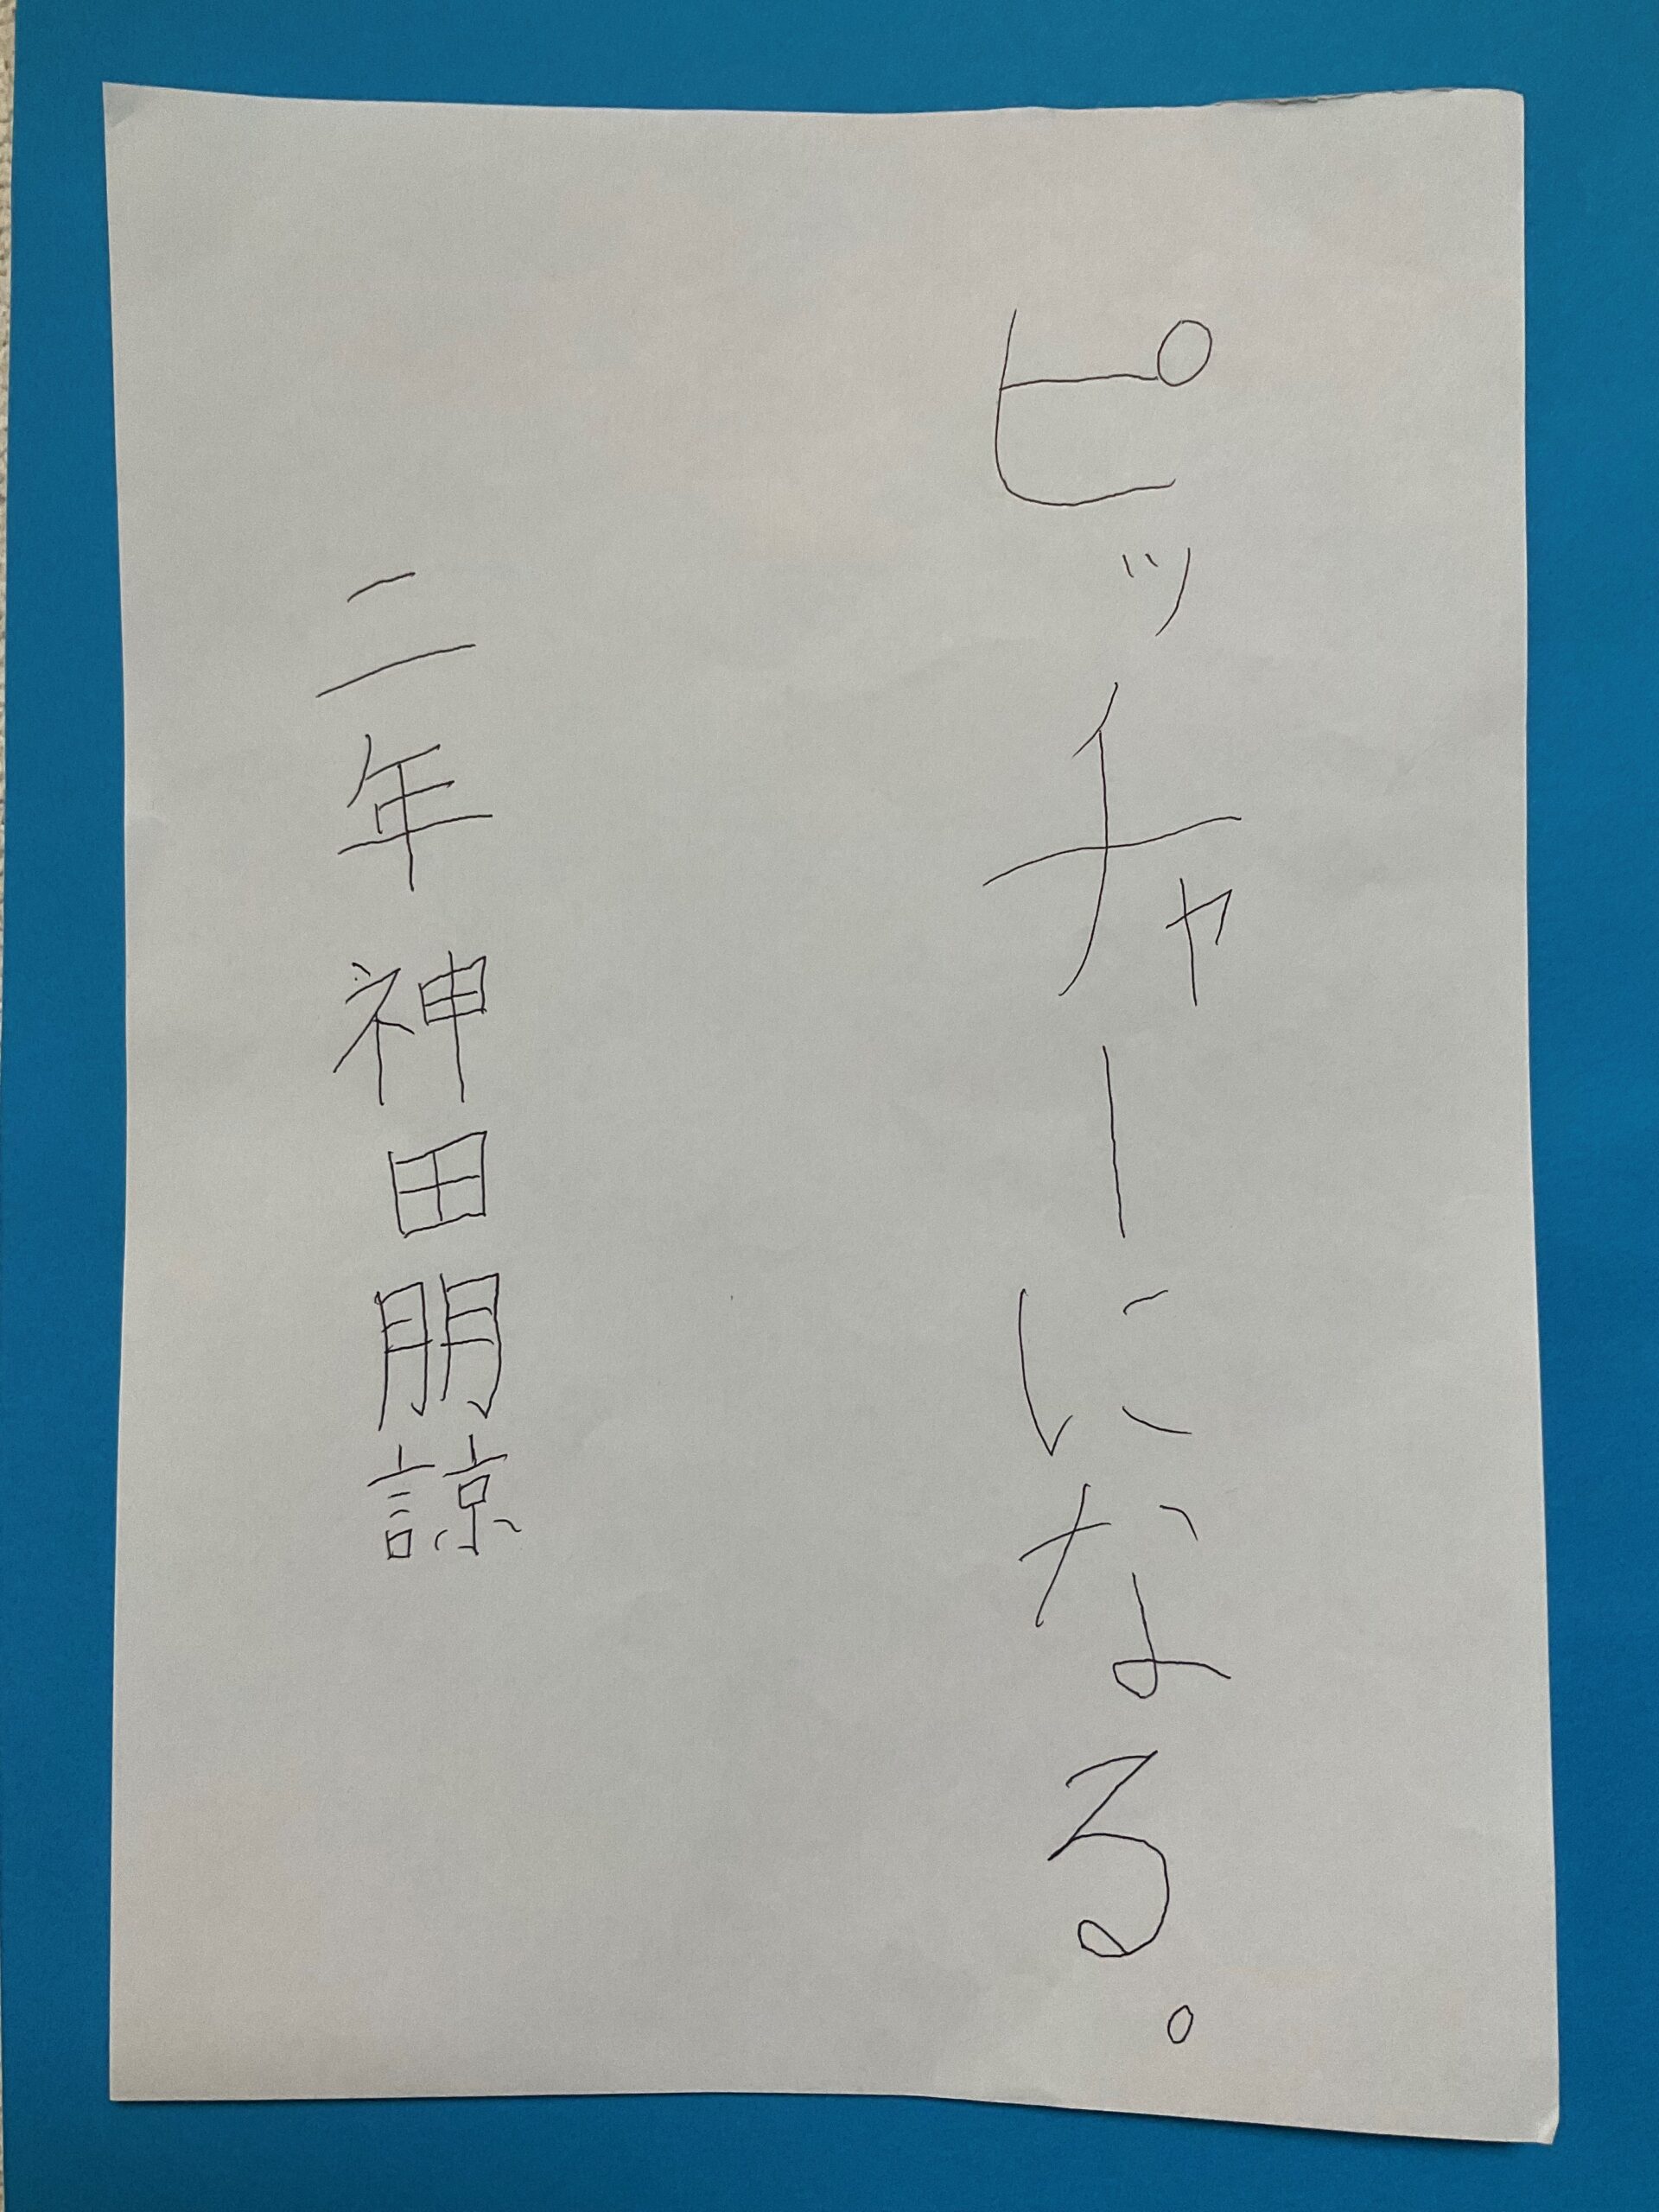 ピッチャーになる。
二年神田朋諒